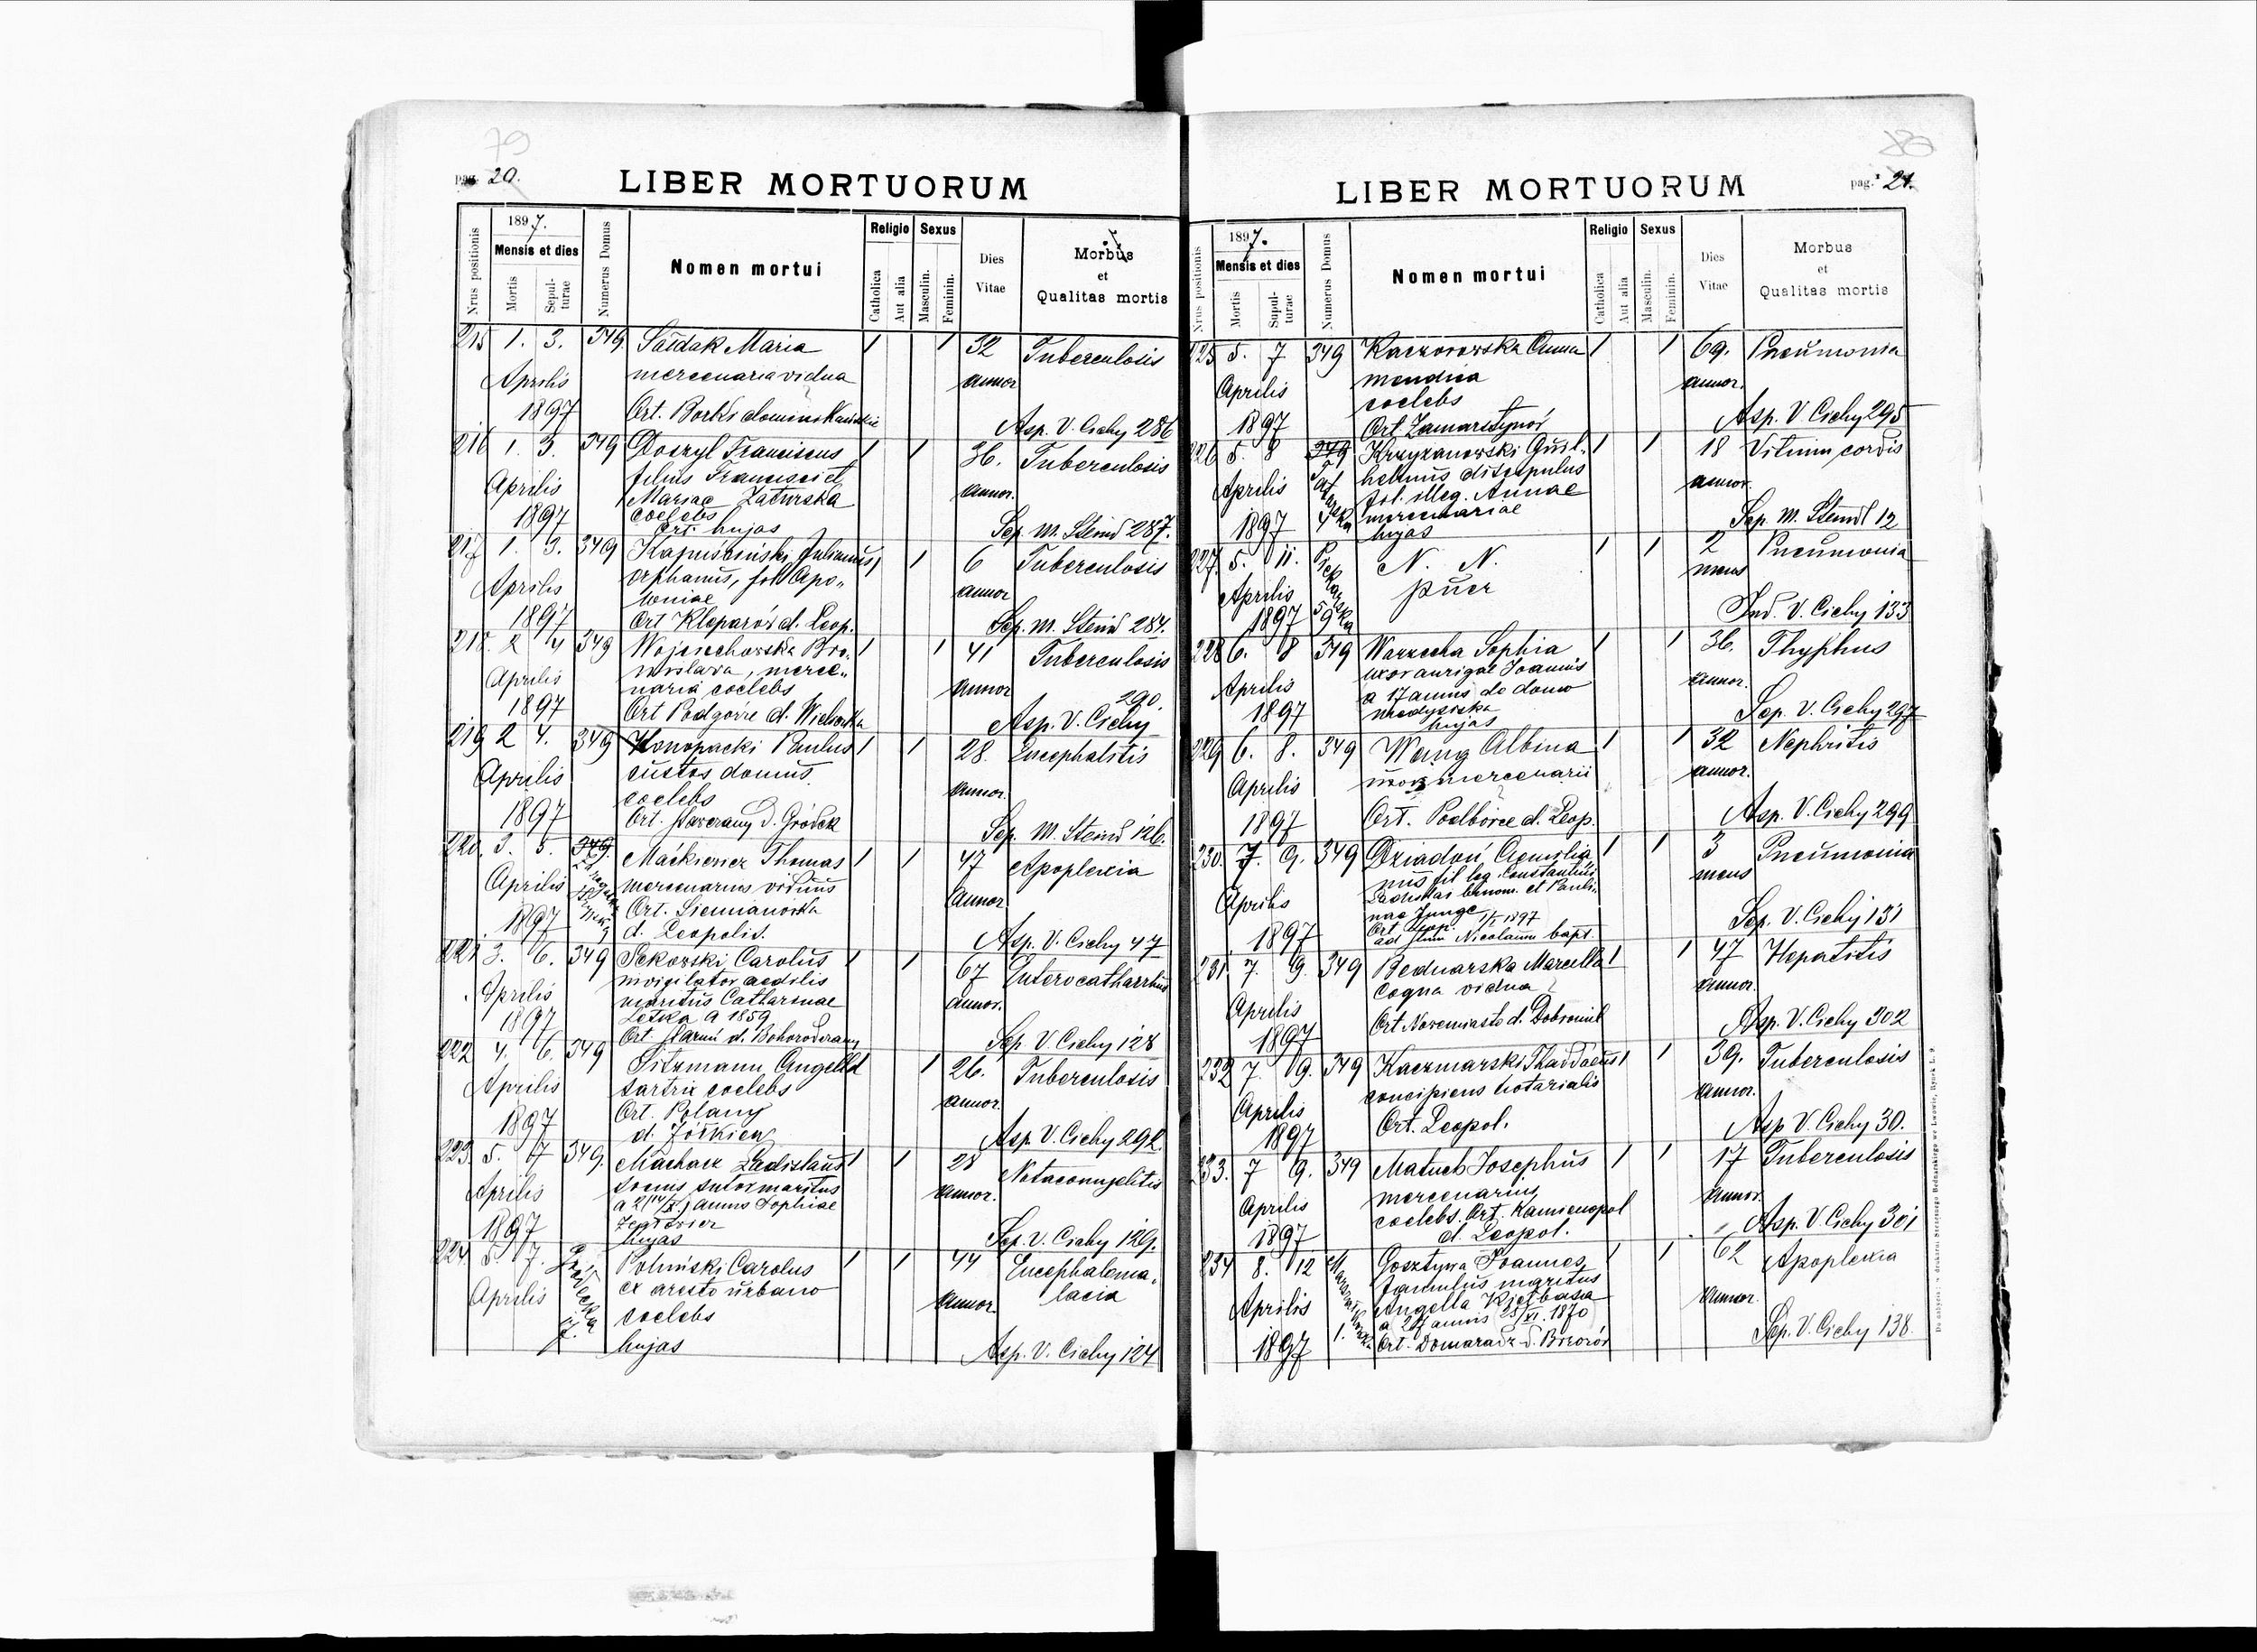 79
pag. 20.
LIBER MORTUORUM
Nrus positionis
1897.
Mensis et dies
Mortis
Sepulturae
Numerus Domus
Nomen mortui
Religio
Catholica
Aut alia
Sexus
Masculin.
Feminin.
Dies
Vitae
Morbus
et
Qualitas mortis
215 1. 3. 349 Saidak Maria 1 1 32 Tuberculosis
Aprilis mercenaria vidua annor
1897 Ort. Borki Asp. V. Cichy 286
216 1. 3. 349 Doszyl Franciscus 1 1 36. Tuberculosis
filius Francisci et
Aprilis Mariae Zaturska annor.
coelebs
1897 Ort. hujas Sep. M. Steind 287.
217 1. 3. 349 Kapuściński Julianus 1 1 6 Tuberculosis
orphanus, fil. Apo-
Aprilis loniae annor
1897 Ort Kleparów d. Leop. Sep. M. Steind 284.
218. 2 4 349 Wojciechowska Bro- 1 1 41 Tuberculosis
nislava, merce-
Aprilis naria coelebs annor 290.
1897 Ort Podgórze d. Wieliczka Asp. V. Cichy
219 2 4. 349 Konopacki Paulus 1 1 28. Encephalitis
custos domus
Aprilis coelebs annor.
1897 Ort. d. Gródek Sep. M. Steind 126.
220. 3. 5. 349. Maćkiewicz Thomas 1 1 47 Apoplexia
Aprilis mercenarius viduus annor
Ort. Siemianówka
1897 d. Leopolis. Asp. V. Cichy 47
221 3. 6. 349 Sekowski Carolus 1 1 67 Enterocatharrhus
invigilator aedilis
Aprilis maritus Catharinae annor.
Letska a 1859
1897 Ort d. Bohorodczany Sep V. Cichy 128
222 4. 6. 349 Sitzmann Angella 1 1 26. Tuberculosis
Aprilis sartrix coelebs annor.
Ort. Polany
1897 d. Żółkiew Asp. V. Cichy 292
223. 5. 7 349. Machacz Ladislaus 1 1 28 Notaeomyelitis
socius sutor maritus
Aprilis a 2 annis Sophiae annor.
1897 hujas Sep. V. Cichy 129.
224 5. 7. Poliński Carolus 1 1 44 Encephaloma-
Aprilis ex aresto urbano annor. lacia
coelebs
hujas Asp. V. Cichy 124
80
pag. 21.
LIBER MORTUORUM
Nrus positionis
1897.
Mensis et dies
Mortis
Sepulturae
Numerus Domus
Nomen mortui
Religio
Catholica
Aut alia
Sexus
Masculin.
Feminin.
Dies
Vitae
Morbus
et
Qualitas mortis
225 5. 7 349 Kaczorowska Anna 1 1 69. Pneumonia
mendica
Aprilis coelebs annor.
1897 Ort Zamarstynów Asp. V. Cichy 295
226 5. 8 349 Krzyżanowski Guil- 1 1 18 Vitium cordis
helmus discipulus
Aprilis fil. illeg. Annae annor.
mercenariae
1897 hujas Sep. M. Steindl 12
227. 5. 11. Piekarska N. N. 1 1 2 Pneumonia
Aprilis puer mens
1897 59 Ind. V. Cichy 133
228 6. 8 349 Warzecha Sophia 1 1 36. Thyphus
uxor aurigae Joannis
Aprilis a 17 annis de domo annor.
1897 hujas Sep. V. Cichy 297
229 6. 8. 349 Wering Albina 1 1 32 Nephritis
Aprilis uxor mercenarii annor.
1897 Ort. Podborce d. Leop. Asp. V. Cichy 299
230. 7. 9. 349 Dziadoń Aemilia- 1 1 3 Pneumonia
nus fil leg. Constantini
Aprilis Ladislai binom. et Pauli- mens
nae Junge 1/1 1897
Ort Leop.
1897 ad Stum Nicolaum bapt. Sep. V. Cichy 131
231. 7. 9. 349 Bednarska Marcella 1 1 47 Hepatitis
Aprilis Coqua vidua annor.
1897 Ort Nowemiasto d. Dobromil Asp. V. Cichy 302
232 7. 9. 349 Kaczmarski Thaddaeus 1 1 39. Tuberculosis
Aprilis concipiens notarialis annor.
1897 Ort. Leopol. Asp V. Cichy 30.
233. 7 9. 349 Matueb Josephus 1 1 17 Tuberculosis
Aprilis mercenarius annor.
coelebs. Ort. Kamienopol
1897 d. Leopol. Asp. V. Cichy 301
234 8. 12 Gosztywa Joannes 1 1 62 Apoplexia
famulus maritus
Aprilis Angella Kiełbasa annor.
a 27 annis 28/VI. 1870
1897 1. Ort. Domaradz d. Brzozów Sep. V. Cichy 138.